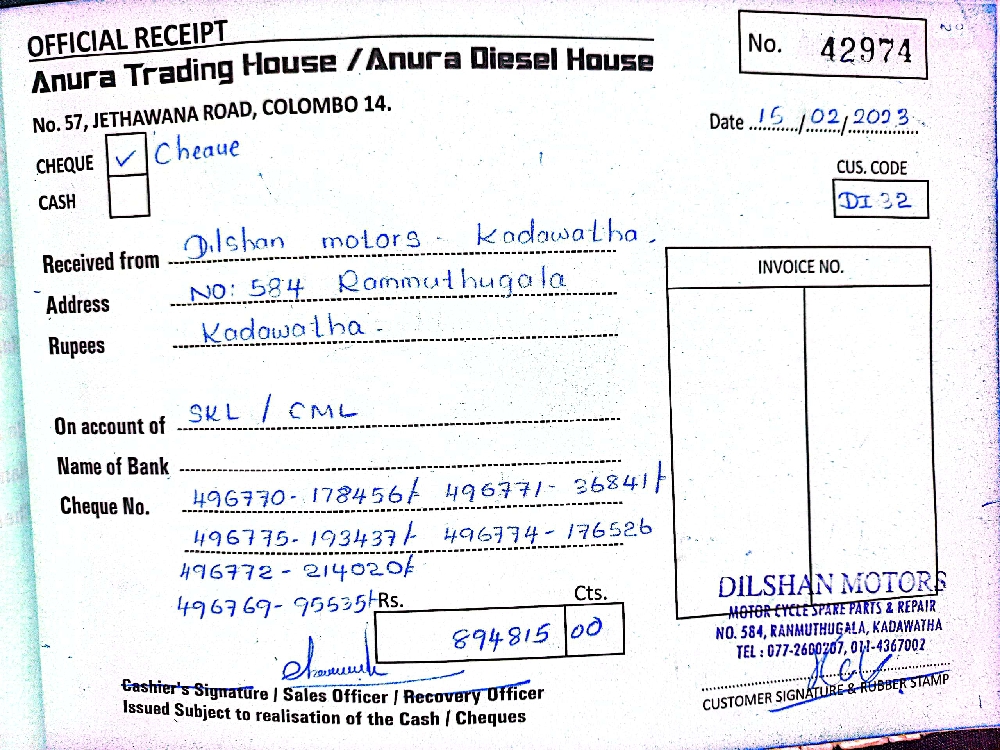 OFFICIAL RECEIPT
Anura Trading House / Anura Diesel House
No. 57, JETHAWANA ROAD, COLOMBO 14.
No. 42974
Date 15/02/2023
CHEQUE ✓ Cheaue
CASH
CUS. CODE
DI 32
Received from Dilshan motors - Kadawatha.
Address NO: 584 Rammuthugala
Rupees Kadawatha -
INVOICE NO.
On account of SKL / CML
Name of Bank
Cheque No. 496770- 178456/- 496771- 36841/-
496775- 193437/- 496774- 176526
496772 - 214020/-
496769- 95535/-
Rs. Cts.
894815 00
Cashier's Signature / Sales Officer / Recovery Officer
Issued Subject to realisation of the Cash / Cheques
DILSHAN MOTORS
MOTOR CYCLE SPARE PARTS & REPAIR
NO. 584, RANMUTHUGALA, KADAWATHA
TEL : 077-2600207, 011-4367002
CUSTOMER SIGNATURE & RUBBER STAMP